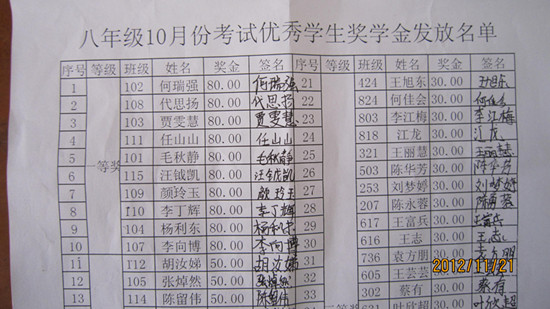 八年级10月份考试优秀学生奖学金发放名单
序号 等级 班级 姓名 奖金 签名 序号 等级 班级 姓名 奖金 签名
1 102 何瑞强 80.00 何瑞强 21 424 王旭东 30.00 王旭东
2 108 代思扬 80.00 代思扬 22 824 何佳会 30.00 何佳会
3 103 贾雯慧 80.00 贾雯慧 23 803 李江梅 30.00 李江梅
4 111 任山山 80.00 任山山 24 818 江龙 30.00 江龙
5 101 毛秋静 80.00 毛秋静 25 321 王丽慧 30.00 王丽慧
一等奖
6 115 汪钺凯 80.00 汪钺凯 26 503 陈华芳 30.00 陈华芳
7 109 颜玲玉 80.00 颜玲玉 27 253 刘梦婷 30.00 刘梦婷
8 110 李丁辉 80.00 李丁辉 28 207 陈永蓉 30.00
9 104 杨利东 80.00 杨利东 29 617 王富兵 30.00 王富兵
10 107 李向博 80.00 李向博 30 616 王志 30.00 王志
11 112 胡汝娣 50.00 胡汝娣 31 736 袁方朋 30.00 袁方朋
12 105 张焯然 50.00 张焯然 32 605 王芸芸 30.00
13 114 陈留伟 50.00 陈留伟 33 302 蔡有 30.00 蔡有
34 631 叶欣超 30.00 叶欣超
2012/11/21